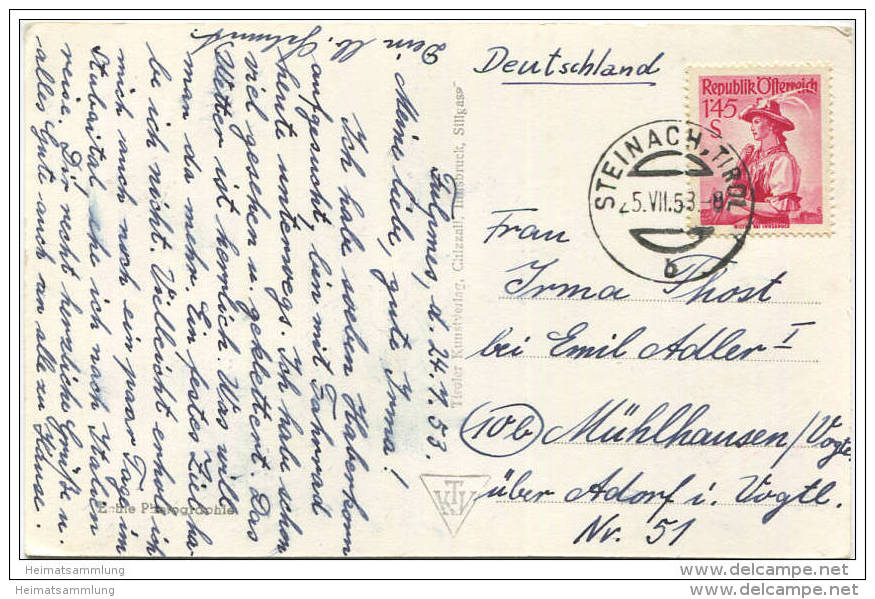 Fulpmes, d. 24.7.53.
Meine liebe, gute Irma!
Ich habe soeben Haberkorn
aufgesucht, bin mit Fahrrad
heute unterwegs. Ich habe schon
viel gesehen u. geklettert. Das
Wetter ist herrlich. Was will
man da mehr. Ein festes Ziel ha-
be ich nicht. Vielleicht erhol ich
mich auch noch ein paar Tage im
Stubaital ehe ich nach Italien
reise. Dir recht herzliche Grüße u.
alles Gute auch an alle zu Hause.
Dein
Tiroler Kunstverlag, Chizzali, Innsbruck, Sillgasse
Echte Photographie
KTV
Deutschland
Republik Österreich
1'45
S
STEINACH, TIROL
25.VII.53-8
b
Frau
Irma Thost
bei Emil Adler I
(10b) Mühlhausen/Vogtl.
über Adorf i. Vogtl.
Nr. 51
Heimatsammlung
Heimatsammlung
www.delcampe.net
www.delcampe.net